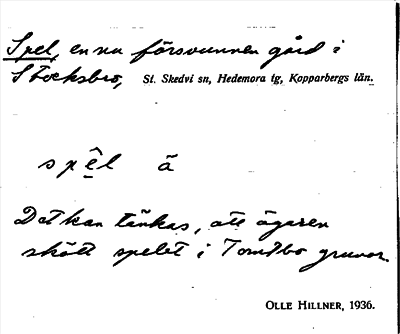 Spel, en nu försvunnen gård i
Stocksbro, St. Skedvi sn, Hedemora tg, Kopparbergs län.
spê̬l ä
Det kan tänkas, att ägaren
skött spelet i Tomtbo gruvor.
OLLE HILLNER, 1936.